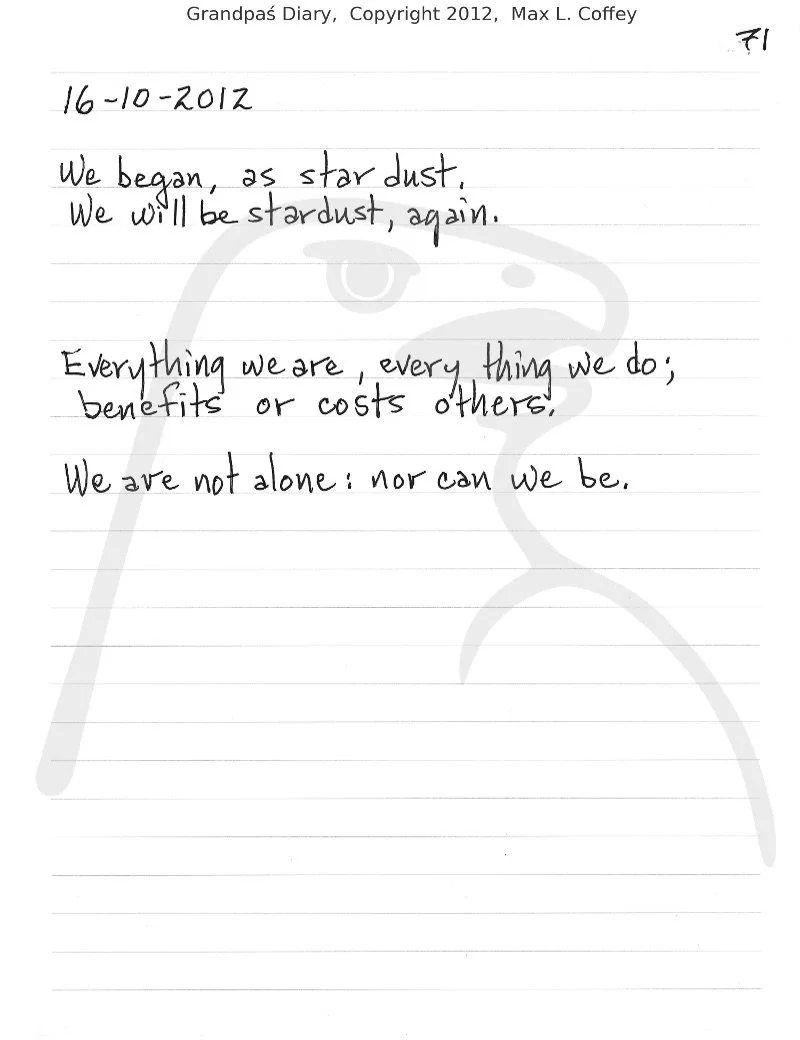 Grandpaś Diary, Copyright 2012, Max L. Coffey
71
16-10-2012
We began, as star dust.
We will be stardust, again.
Everything we are, every thing we do;
benefits or costs others.
We are not alone: nor can we be.